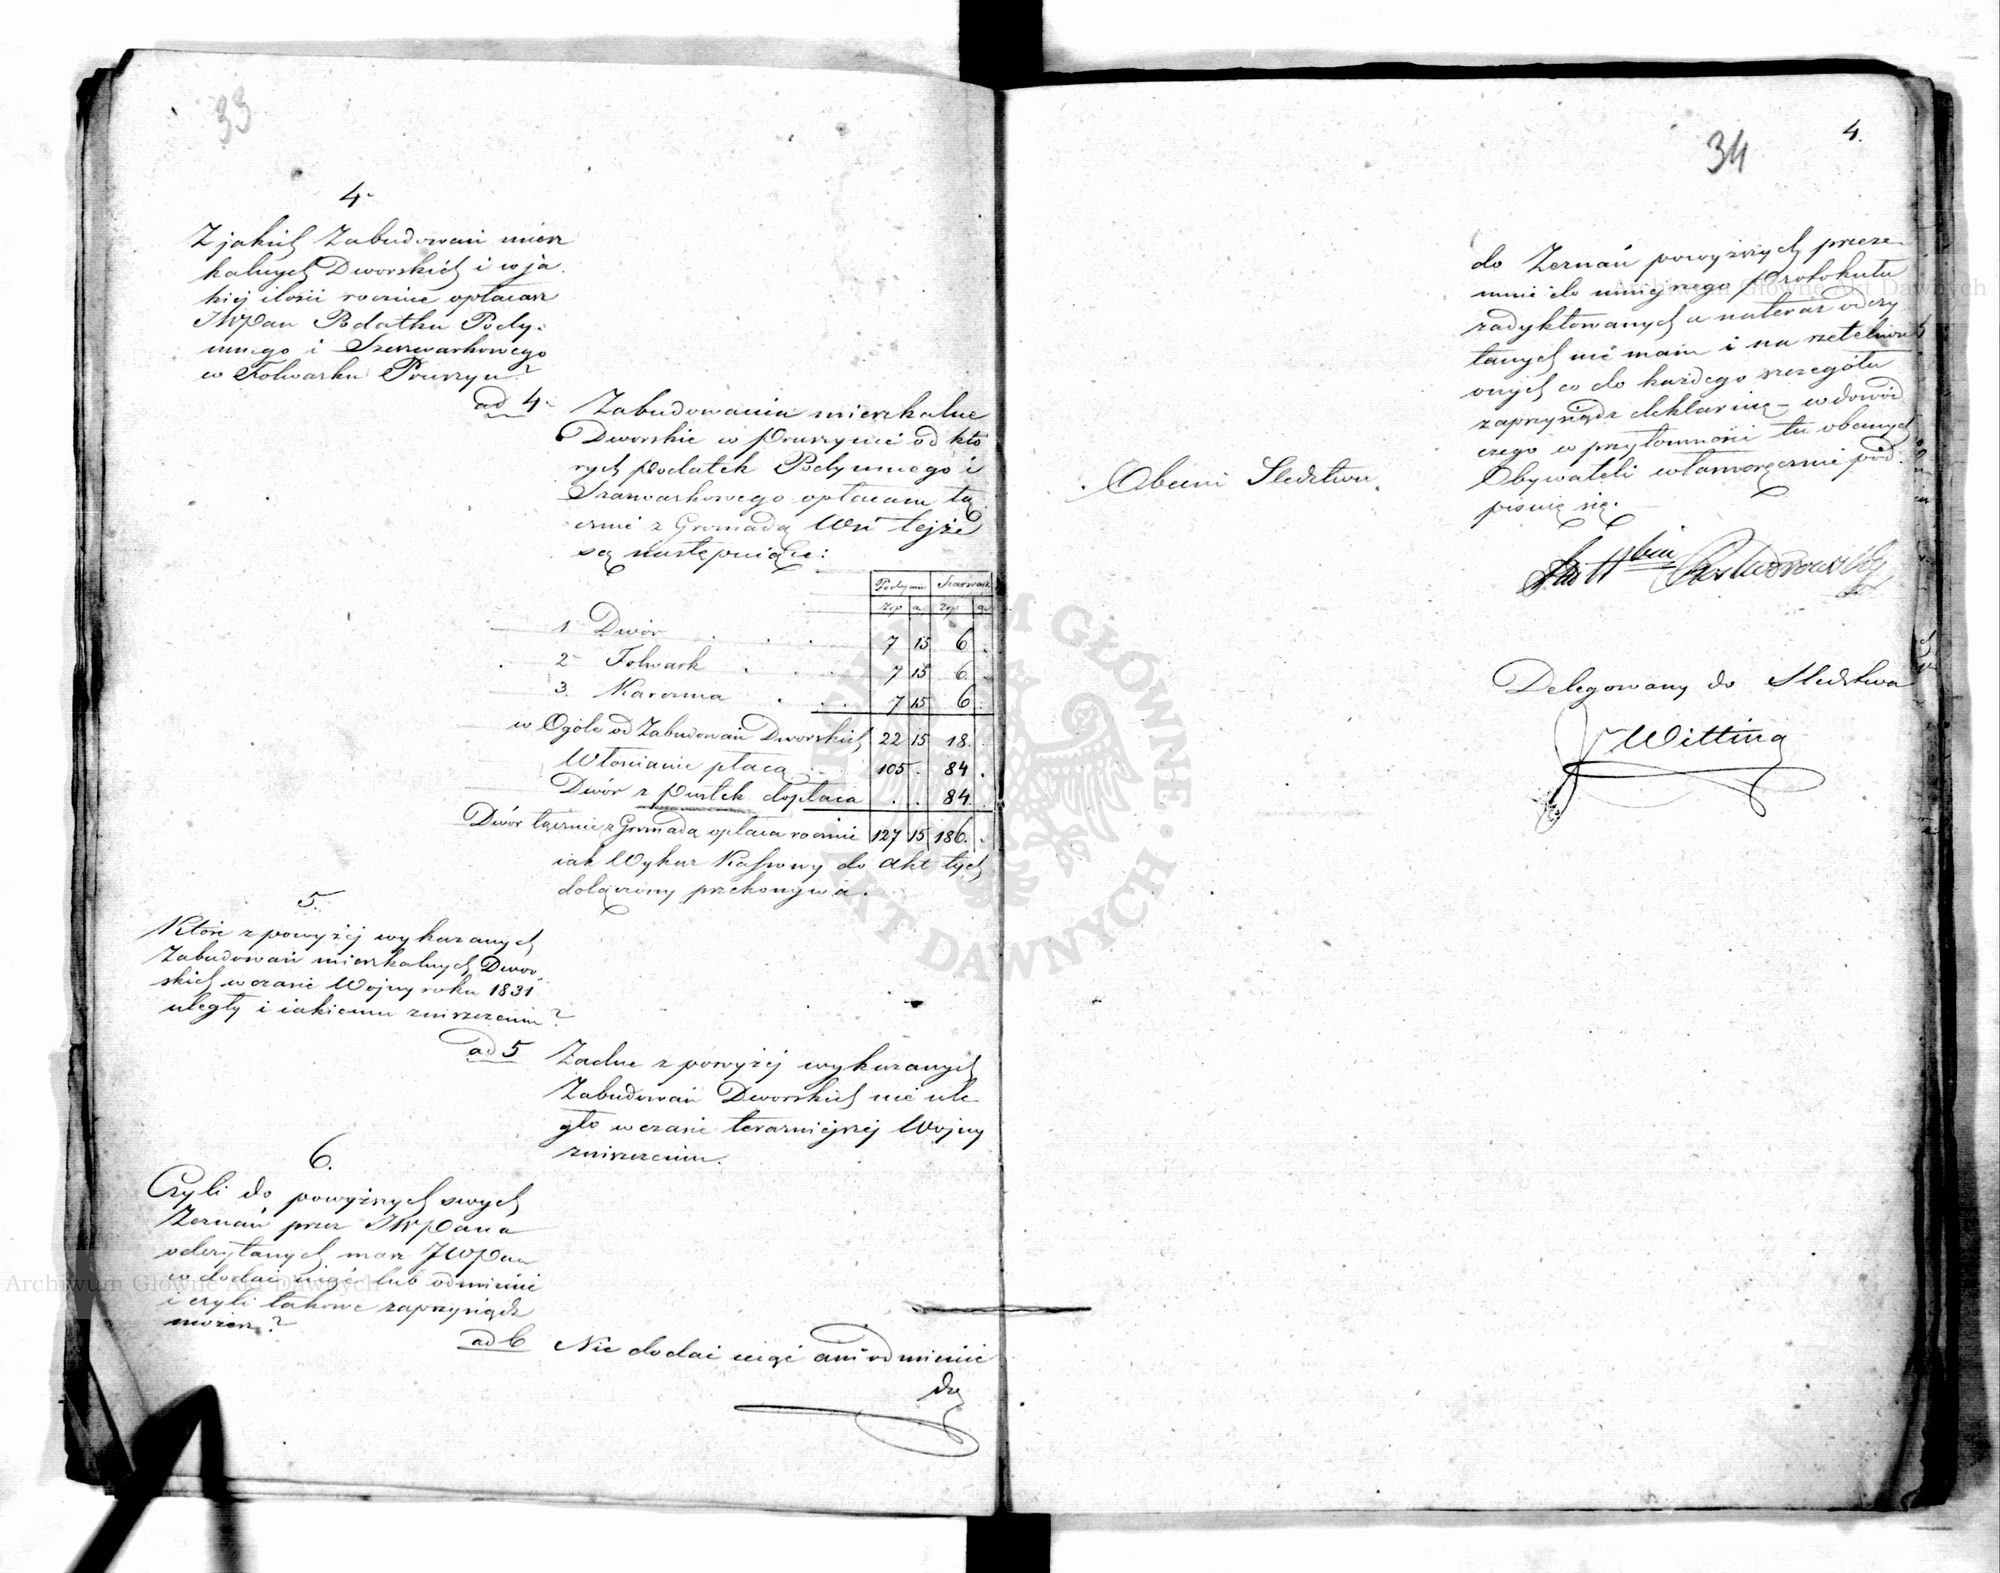 33
4
Z jakich Zabudowań miesz
kalnych Dworskich i w ja
kiej ilości rocznie opłacasz
JWPan Podatku Pody-
mnego i Szarwarkowego
w Folwarku Pruszyn?
ad 4 Zabudowania mieszkalne
Dworskie w Pruszynie od któ
rych podatek Podymnego i
Szarwarkowego opłacam łą
cznie z Gromadą Wsi tejże
są następujące:
Podymne Szarwark
Złp g Złp g
1 Dwór . . . 7 15 6 .
2 Folwark . . . 7 15 6 .
3. Karczma . . . 7 15 6 .
w Ogóle od Zabudowań Dworskich 22 15 18 .
Włościanie płacą 105 . 84 .
Dwór z pustek dopłaca . . 84 .
Dwór łącznie z Gromadą opłaca rocznie 127 15 186 .
iak Wykaz Kassowy do Akt tych
dołączony przekonywa.
5.
Które z powyżej wykazanych
Zabudowań mieszkalnych Dwor
skich w czasie Wojny roku 1831
uległy i iakiemu zniszczeniu?
ad 5 Żadne z powyżej wykazanych
Zabudowań Dworskich nie ule-
gło w czasie teraźniejszej Wojny
zniszczeniu.
6.
Czyli do powyższych swych
Zeznań przez JWPana
odczytanych masz JWPan
co dodać ująć lub odmienić
i czyli takowe zaprzysiądz
możesz?
ad 6 Nic dodać ująć ani odmienić
do
34
4.
do Zeznań powyższych przeze-
mnie do niniejszego Protokułu
zadyktowanych a nateraz odczy
tanych nie mam i na rzetelność
onych co do każdego szczegółu
zaprzysiądz deklaruię – w dowód
czego w przytomności tu obecnych
Obywateli własnoręcznie pod-
pisuię się.
Obecni Sledztwu.
Delegowany do Sledztwa
Witting
Archiwum Główne Akt Dawnych
Archiwum Główne Akt Dawnych
ARCHIWUM GŁÓWNE AKT DAWNYCH